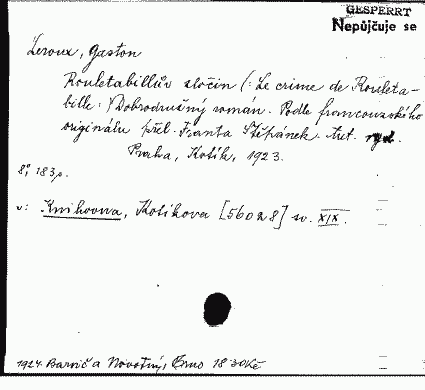 GESPERRT
Nepůjčuje se
Leroux, Gaston
Rouletabillův zločin (: Le crime de Rouleta-
bille :) Dobrodružný román. Podle francouzského
originálu přel. Franta Štěpánek. Aut. vyd.
Praha, Kotík, 1923.
8°, 183 p.
v: Knihovna, Kotíkova [560 a 8] sv. XIX.
1924. Barvič a Novotný, Brno 18·30 Kč